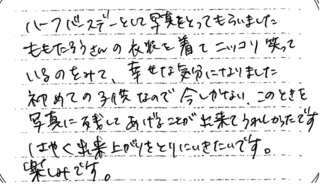 ハーフバースデーとして写真をとってもらいました
ももたろうさんの衣装を着てニッコリ笑って
いるのをみて、幸せな気分になりました
初めての子供なので今しかない、このときを
写真に残してあげることが出来てうれしかったです
はやく出来上がりをとりにいきたいです。
楽しみです。